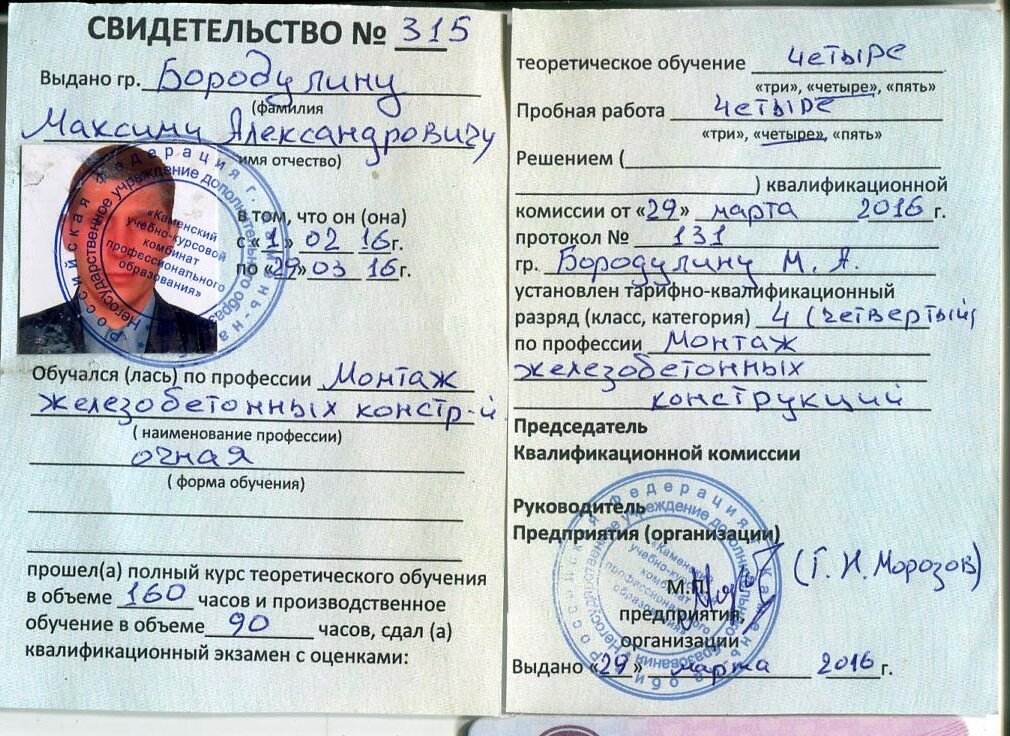 СВИДЕТЕЛЬСТВО № 315
Выдано гр. Бородулину
(фамилия
Максиму Александровичу
имя отчество)
Российская Федерация г.
Негосударственное учреждение дополнительного образования
«Каменский
учебно-курсовой
комбинат
профессионального
образования»
в том, что он (она)
с «1» 02 16г.
по «29» 03 16г.
Обучался (лась) по профессии Монтаж
железобетонных констр-й
( наименование профессии)
очная
( форма обучения)
прошел(а) полный курс теоретического обучения
в объеме 160 часов и производственное
обучение в объеме 90 часов, сдал (а)
квалификационный экзамен с оценками:
теоретическое обучение четыре
«три», «четыре», «пять»
Пробная работа четыре
«три», «четыре», «пять»
Решением (
) квалификационной
комиссии от «29» марта 2016 г.
протокол № 131
гр. Бородулину М. А.
установлен тарифно-квалификационный
разряд (класс, категория) 4 (четвертый)
по профессии Монтаж
железобетонных
конструкций
Председатель
Квалификационной комиссии
Руководитель
Предприятия (организации)
(Г. Н. Морозов)
М.П.
предприятия,
организации
Российская Федерация г.
Негосударственное учреждение дополнительного образования
«Каменский
учебно-курсовой
комбинат
профессионального
образования»
Выдано «29» марта 2016 г.